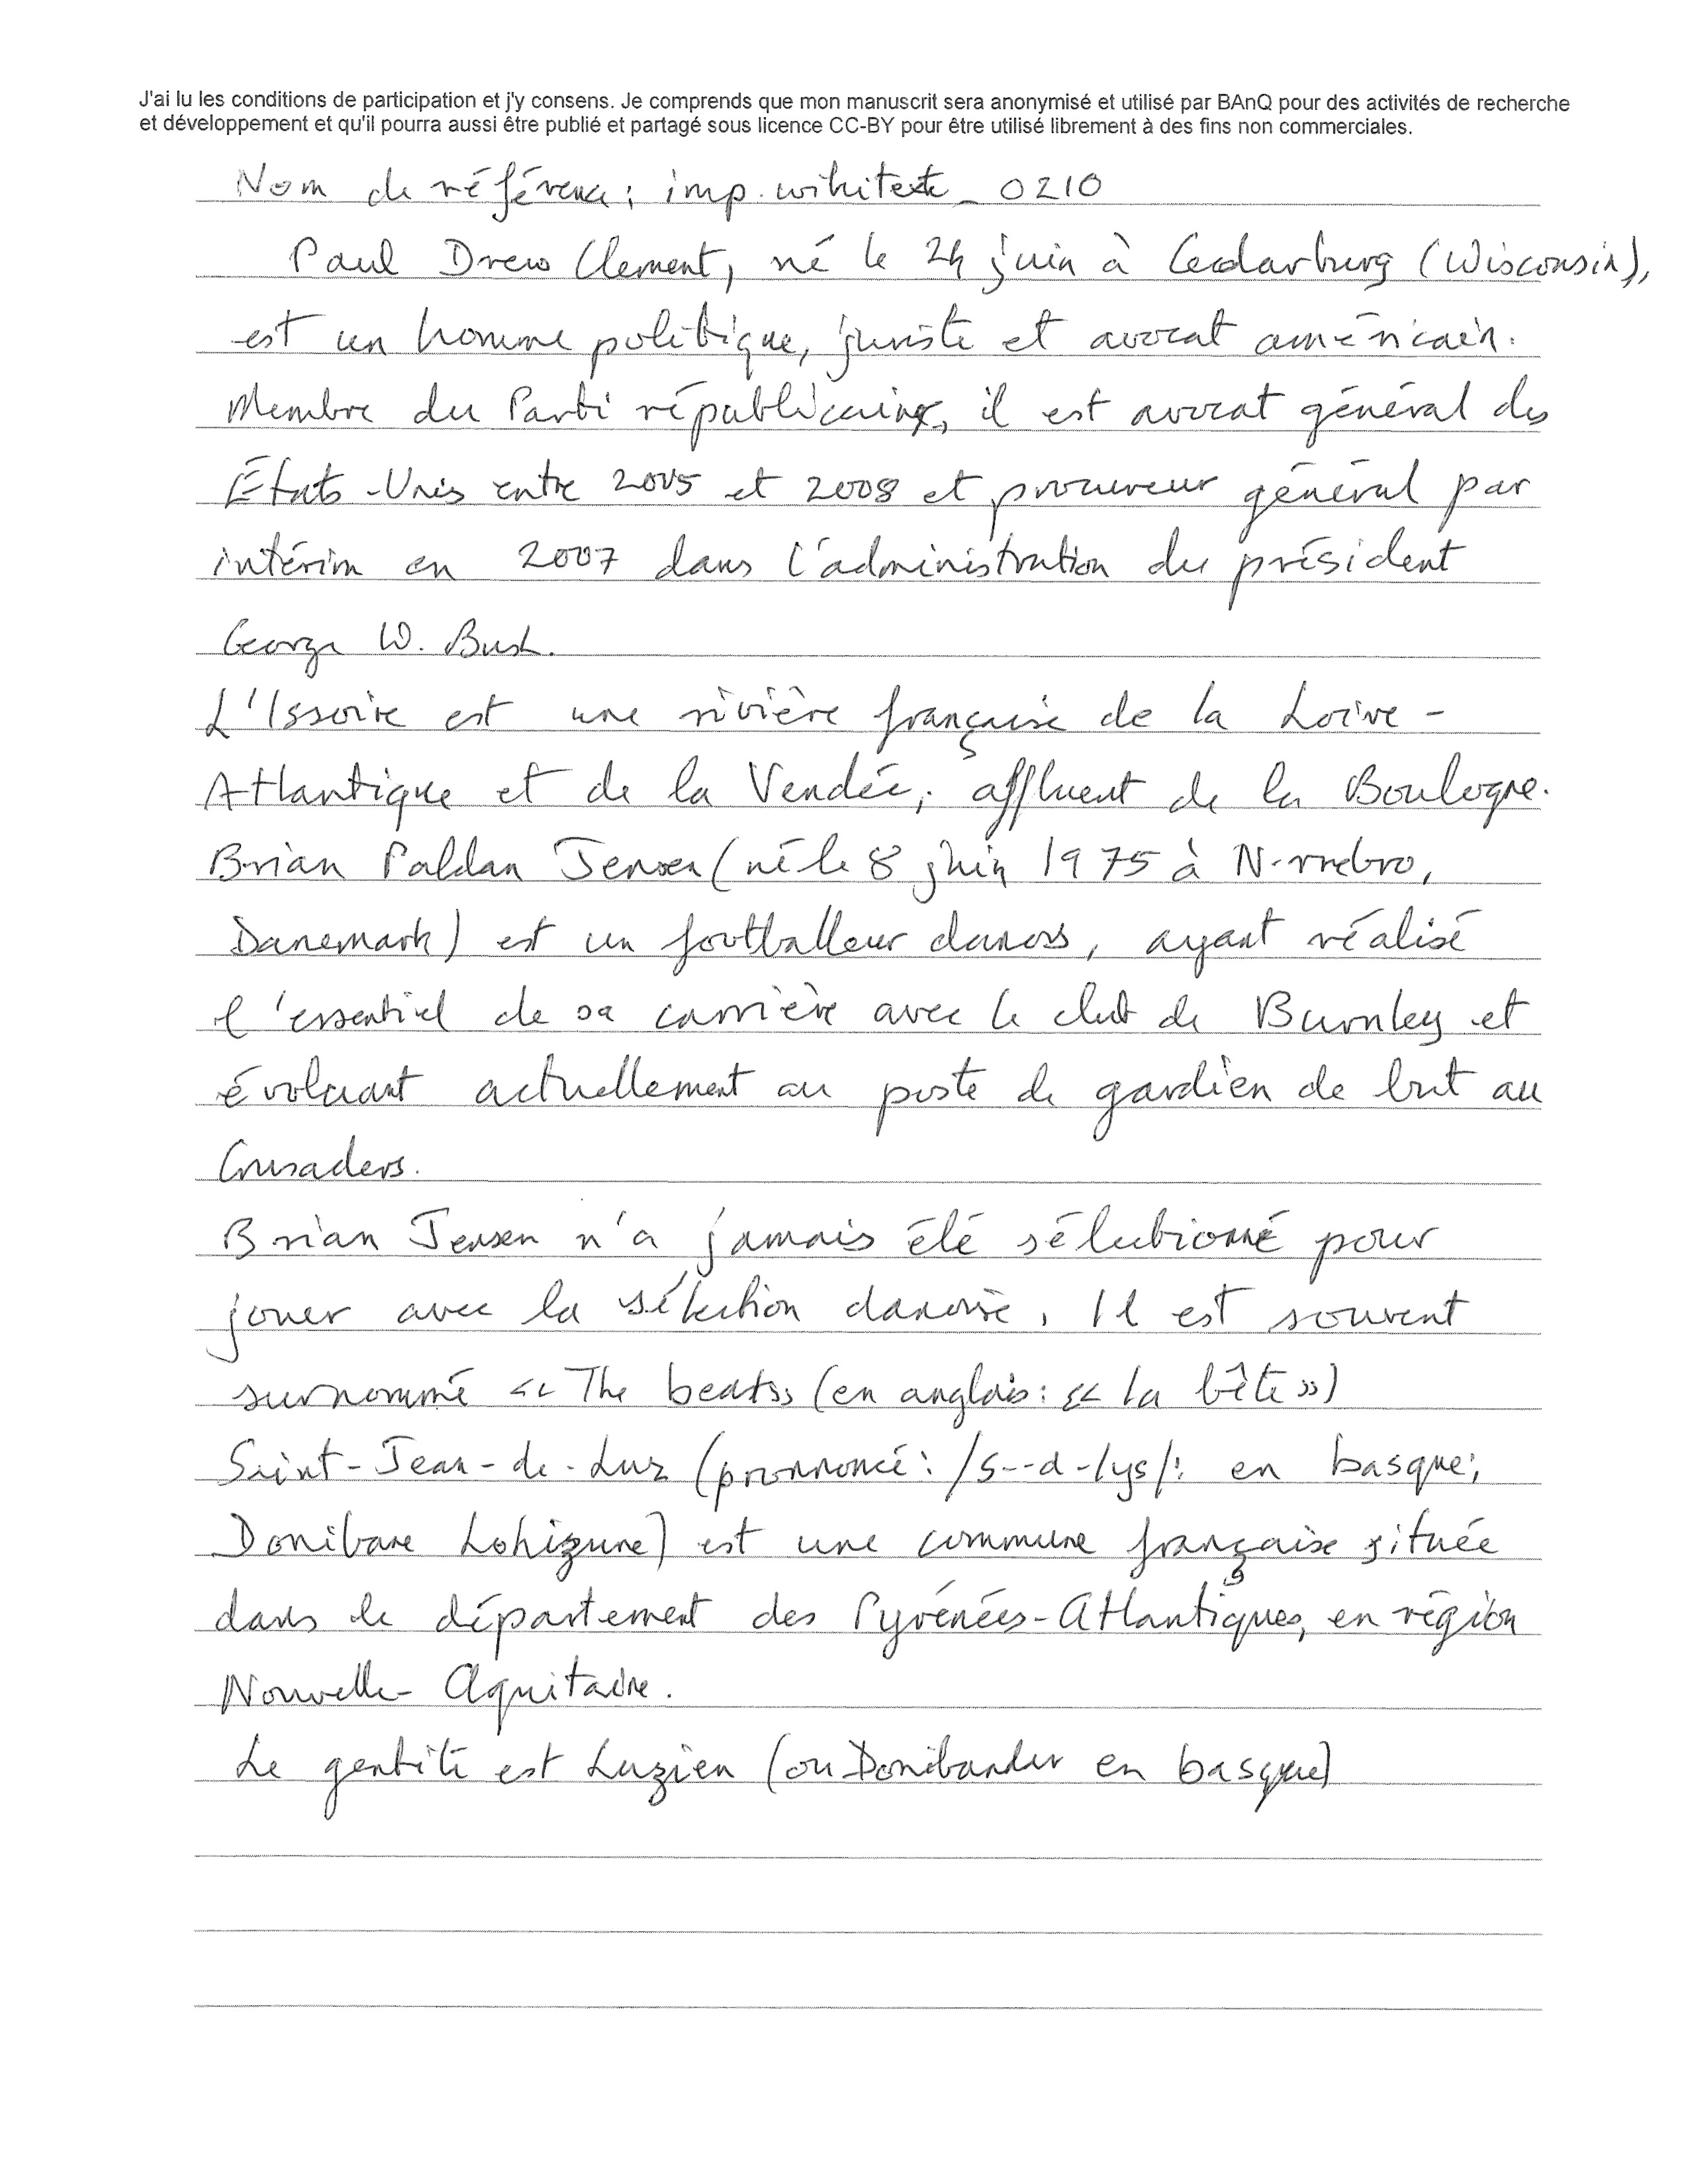 J'ai lu les conditions de participation et j'y consens. Je comprends que mon manuscrit sera anonymisé et utilisé par BAnQ pour des activités de recherche
et développement et qu'il pourra aussi être publié et partagé sous licence CC-BY pour être utilisé librement à des fins non commerciales.
Nom de référence : imp.wikitexte_0210
Paul Drew Clement, né le 24 juin à Cedarburg (Wisconsin),
est un homme politique, juriste et avocat américain.
Membre du Parti républicain, il est avocat général des
États-Unis entre 2005 et 2008 et procureur général par
intérim en 2007 dans l'administration du président
George W. Bush.
L'Issoire est une rivière française de la Loire-
Atlantique et de la Vendée, affluent de la Boulogne.
Brian Paldan Jensen (né le 8 juin 1975 à N-rrebro,
Danemark) est un footballeur danois, ayant réalisé
l'essentiel de sa carrière avec le club de Burnley et
évoluant actuellement au poste de gardien de but au
Crusaders.
Brian Jensen n'a jamais été sélectionné pour
jouer avec la sélection danoise. Il est souvent
surnommé « The beats» (en anglais : « la bête »)
Saint-Jean-de-Luz (prononcé : /s--d-lys/: en basque;
Donibane Lohizune) est une commune française située
dans le département des Pyrénées-Atlantiques, en région
Nouvelle-Aquitaine.
Le gentilé est Luzien (ou Donibandar en basque)